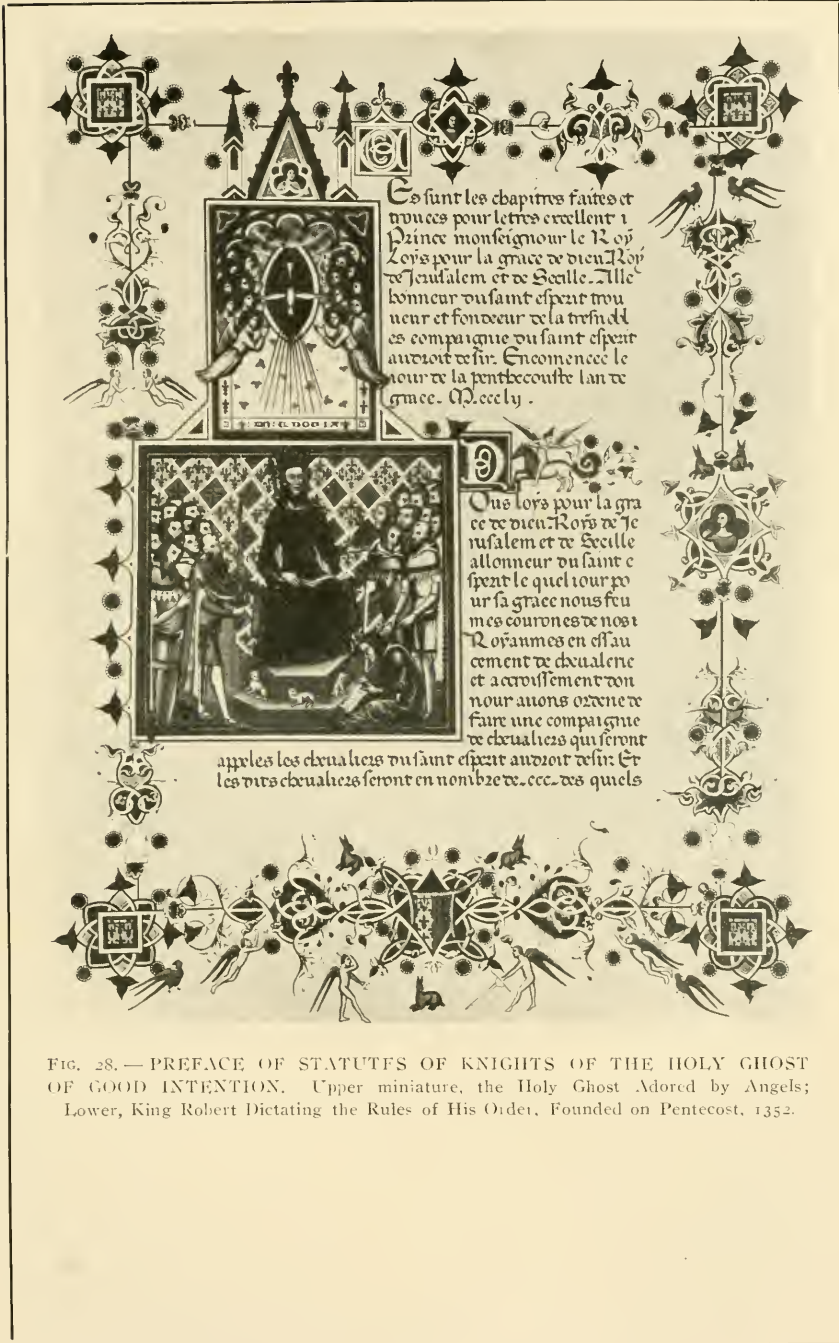 Ce sunt les chapitres faites et
trouees pour letres excellent i
Prince monseignour le Roy
Loys pour la grace de dieu Roy
de Jerusalem et de Secille. Alle
honneur du saint esperit trou
ueur et fondeeur de la tresnobl
es compaignie du saint esperit
au droit desir. Encomencee le
iour de la penthecouste lan de
grace. M.ccc.lij.
Nous loys pour la gra
ce de dieu. Roys de Je
rusalem et de Secille
allonneur du saint e
sperit le quel iour po
ur sa grace nous feu
mes courones de nos i
Royaumes en essau
cement de cheualerie
et accroissement don
nour auons ordene de
faire une compaignie
de cheualiers qui seront
appeles les cheualiers du saint esperit au droit desir. Et
les dits cheualiers seront en nombre de .ccc. des quiels
FIG. 28. — PREFACE OF STATUTES OF KNIGHTS OF THE HOLY GHOST
OF GOOD INTENTION. Upper miniature, the Holy Ghost Adored by Angels;
Lower, King Robert Dictating the Rules of His Order, Founded on Pentecost, 1352.